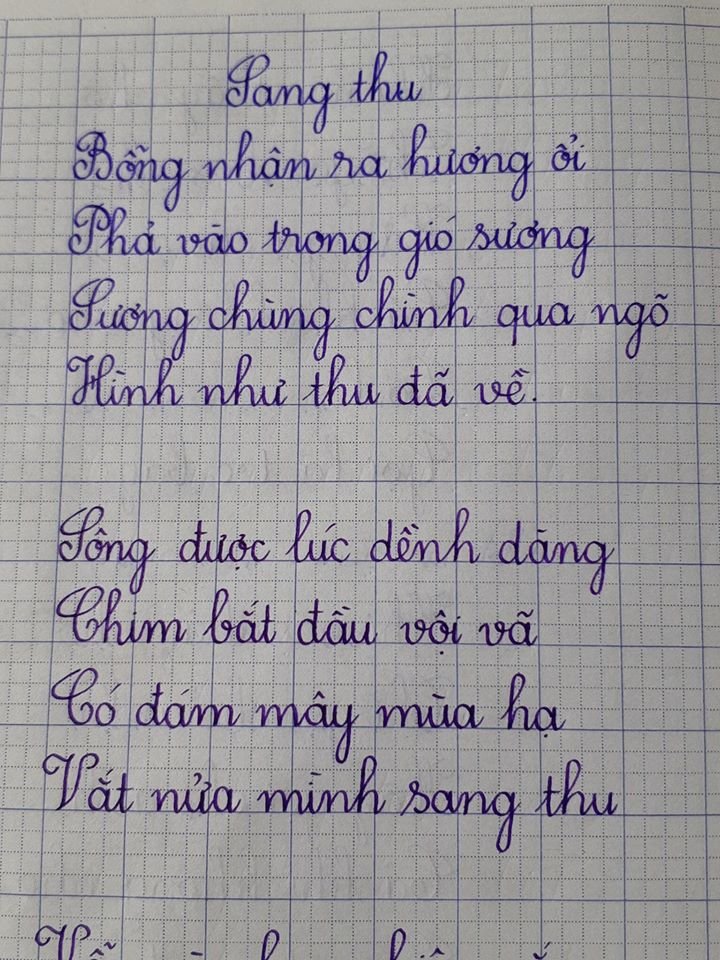 Sang thu
Bỗng nhận ra hương ổi
Phả vào trong gió sương
Sương chùng chình qua ngõ
Hình như thu đã về.
Sông được lúc dềnh dàng
Chim bắt đầu vội vã
Có đám mây mùa hạ
Vắt nửa mình sang thu